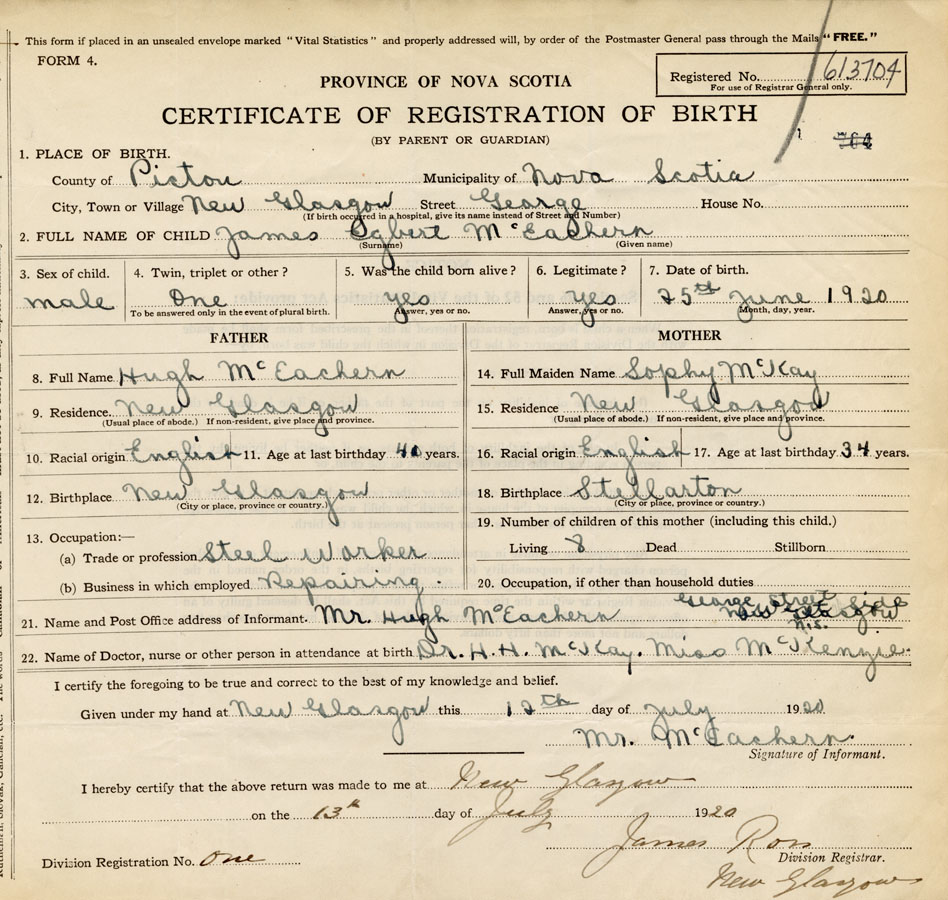 This form if placed in an unsealed envelope marked "Vital Statistics" and properly addressed will, by order of the Postmaster General pass through the Mails "FREE."
FORM 4.
Registered No. 613704
For use of Registrar General only.
PROVINCE OF NOVA SCOTIA
CERTIFICATE OF REGISTRATION OF BIRTH
(BY PARENT OR GUARDIAN)
1. PLACE OF BIRTH.
County of Pictou Municipality of Nova Scotia
City, Town or Village New Glasgow Street George House No.
(If birth occurred in a hospital, give its name instead of Street and Number)
2. FULL NAME OF CHILD James Egbert McEachern
(Surname) (Given name)
3. Sex of child. 4. Twin, triplet or other? 5. Was the child born alive? 6. Legitimate? 7. Date of birth.
male One yes yes 25th June 1920
To be answered only in the event of plural birth. Answer, yes or no. Answer, yes or no. Month, day, year.
FATHER
8. Full Name Hugh McEachern
9. Residence New Glasgow
(Usual place of abode.) If non-resident, give place and province.
10. Racial origin English 11. Age at last birthday 40 years.
12. Birthplace New Glasgow
(City or place, province or country.)
13. Occupation:—
(a) Trade or profession Steel Worker
(b) Business in which employed Repairing.
MOTHER
14. Full Maiden Name Sophy McKay
15. Residence New Glasgow
(Usual place of abode.) If non-resident, give place and province.
16. Racial origin English 17. Age at last birthday 34 years.
18. Birthplace Stellarton
(City or place, province or country.)
19. Number of children of this mother (including this child.)
Living 8 Dead Stillborn
20. Occupation, if other than household duties
George Street
21. Name and Post Office address of Informant. Mr. Hugh McEachern New Glasgow
N.S.
22. Name of Doctor, nurse or other person in attendance at birth Dr. H. H. McKay. Miss McKenzie.
I certify the foregoing to be true and correct to the best of my knowledge and belief.
Given under my hand at New Glasgow this 12th day of July 1920
Mr. McEachern.
Signature of Informant.
I hereby certify that the above return was made to me at New Glasgow
on the 13th day of July 1920
James Ross
Division Registration No. One Division Registrar.
New Glasgow